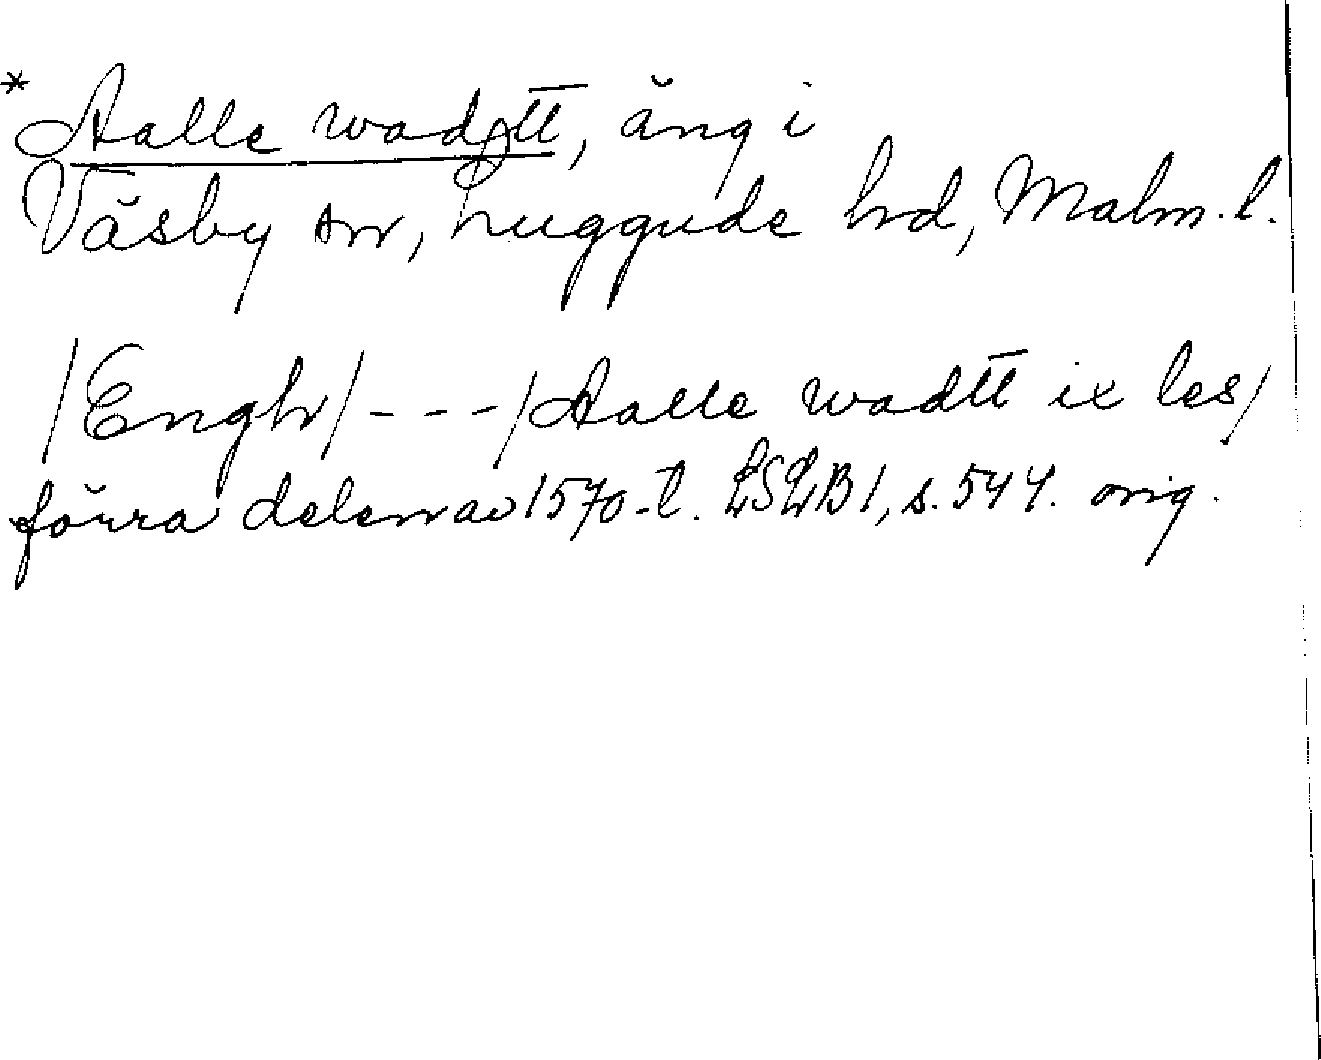 * Aalle wadtt, äng i
Väsby sn, Luggude hd, Malm. l.
/Engh/ - - - /Aalle wadtt ix les/
förra delen av 1570-t. LSLB 1, s. 544. orig.